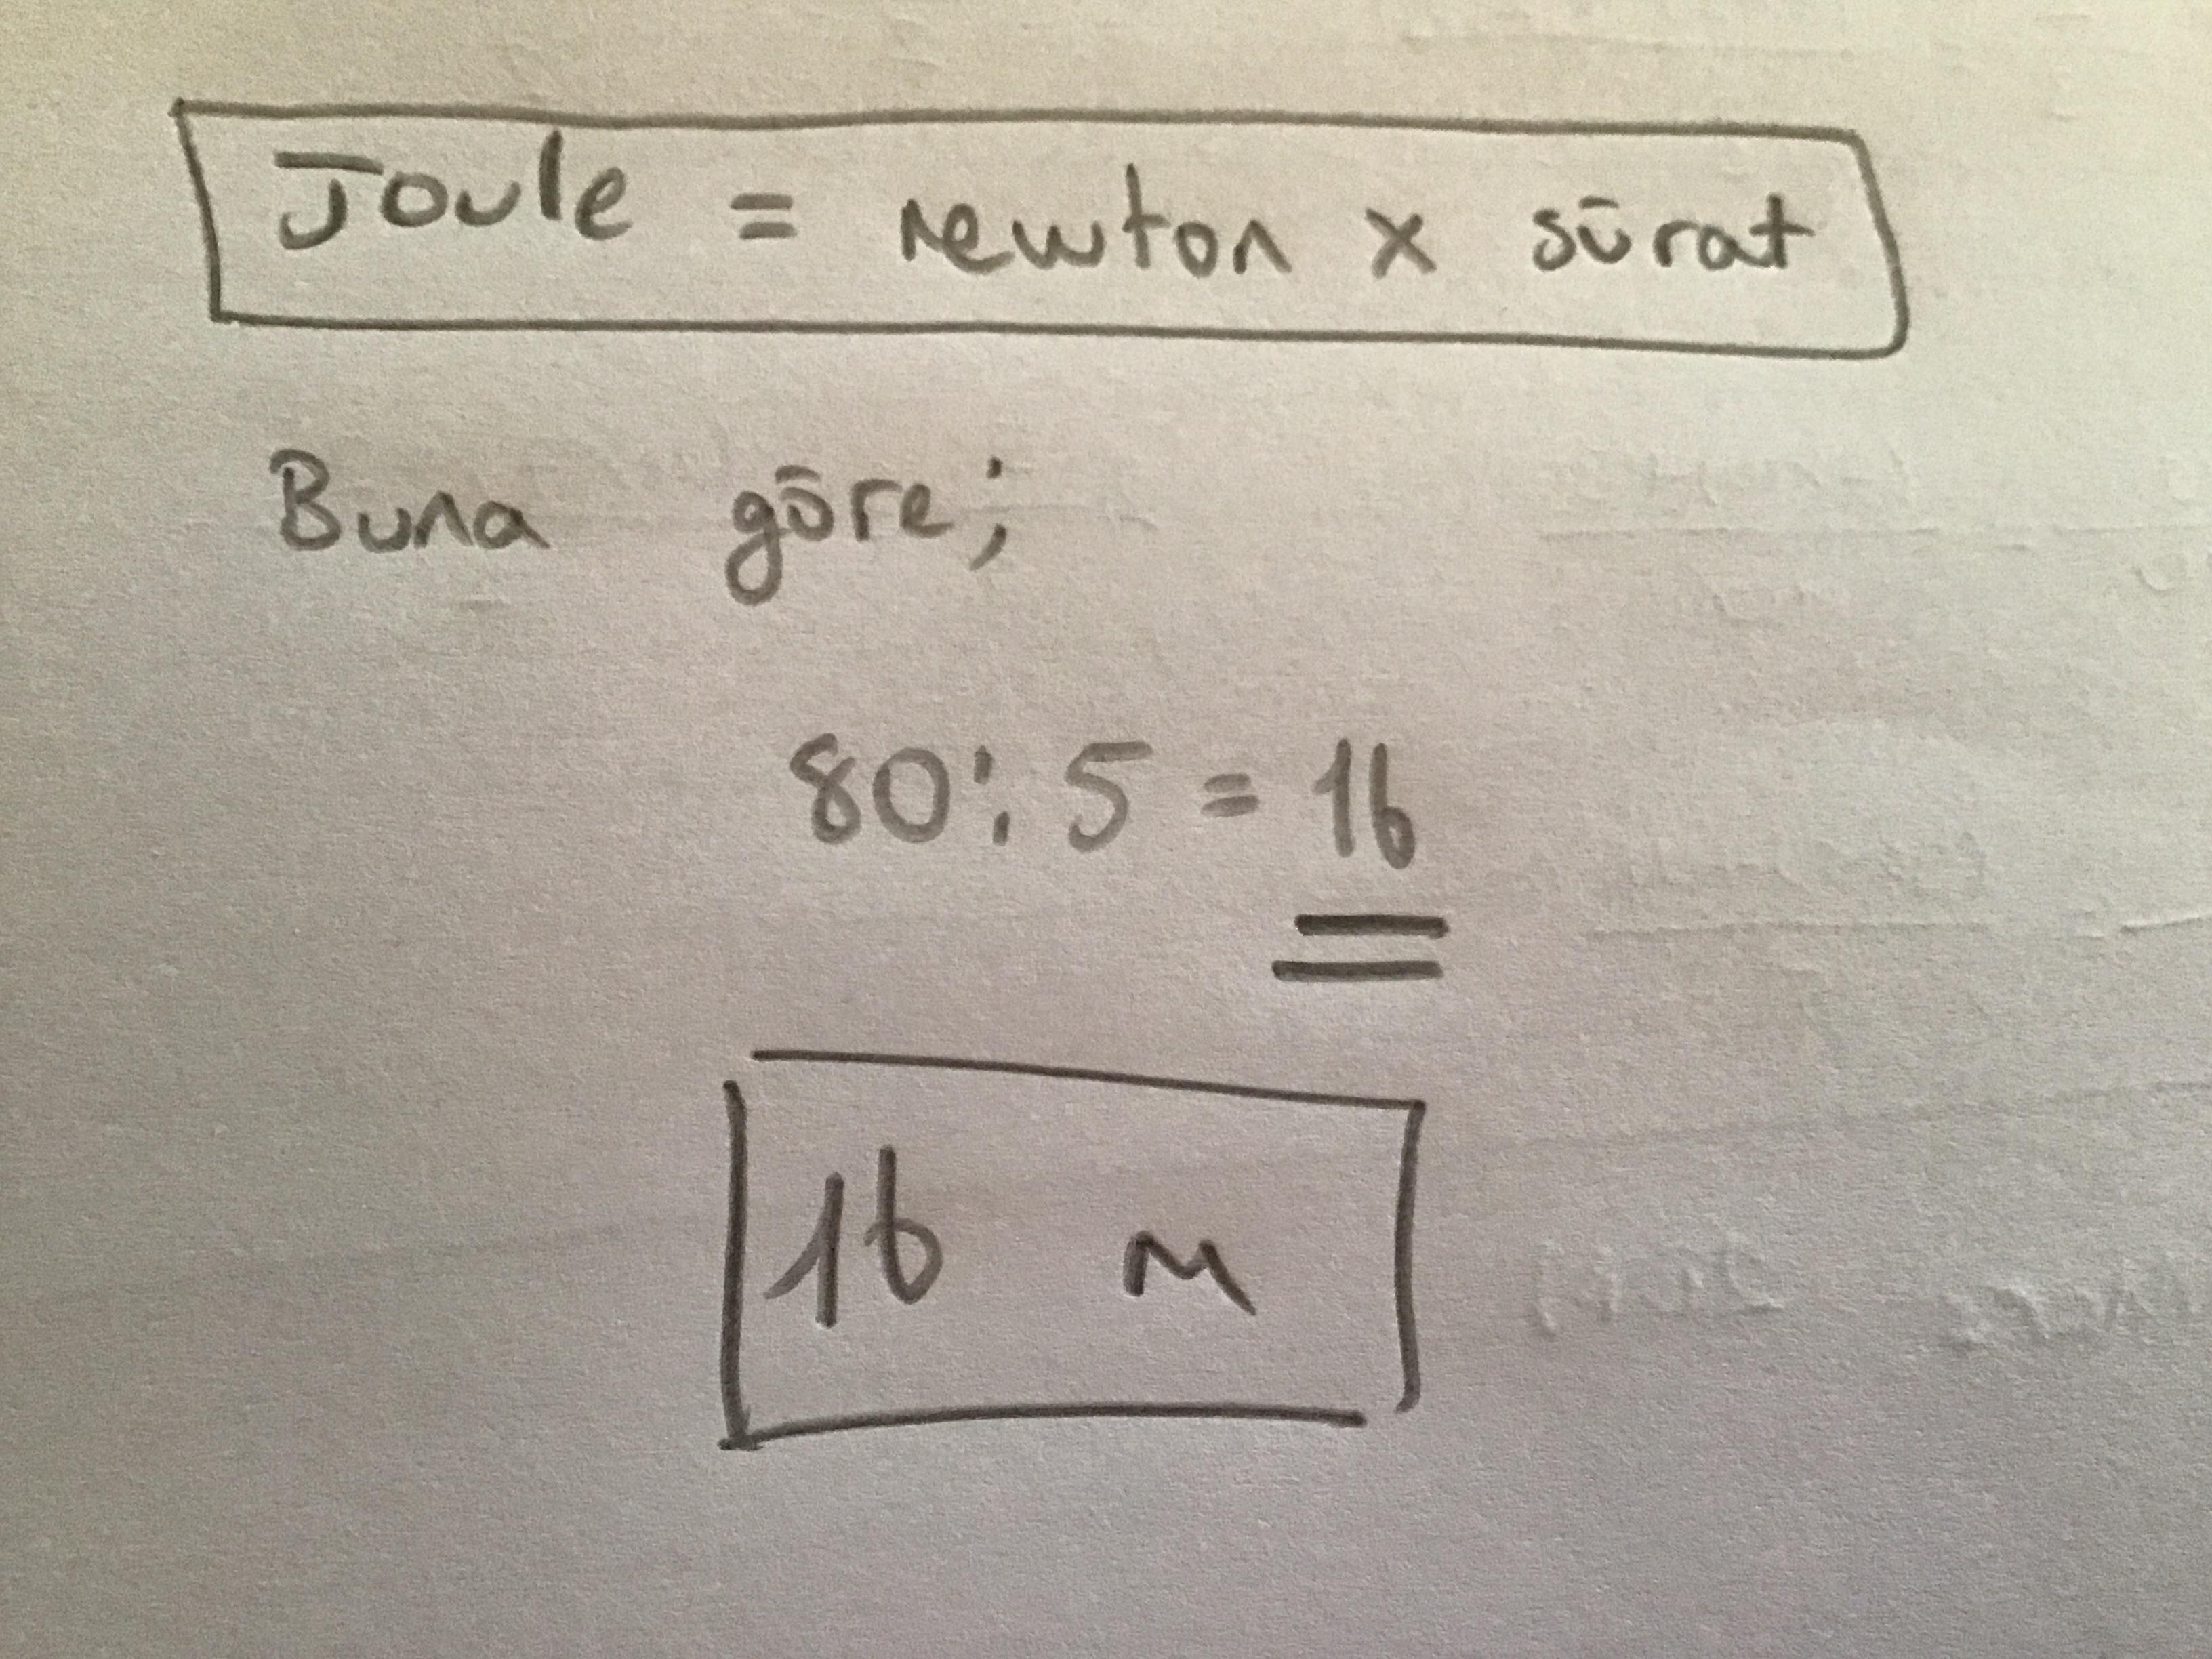 Joule = newton x sürat
Buna göre;
80 : 5 = 16
16 m